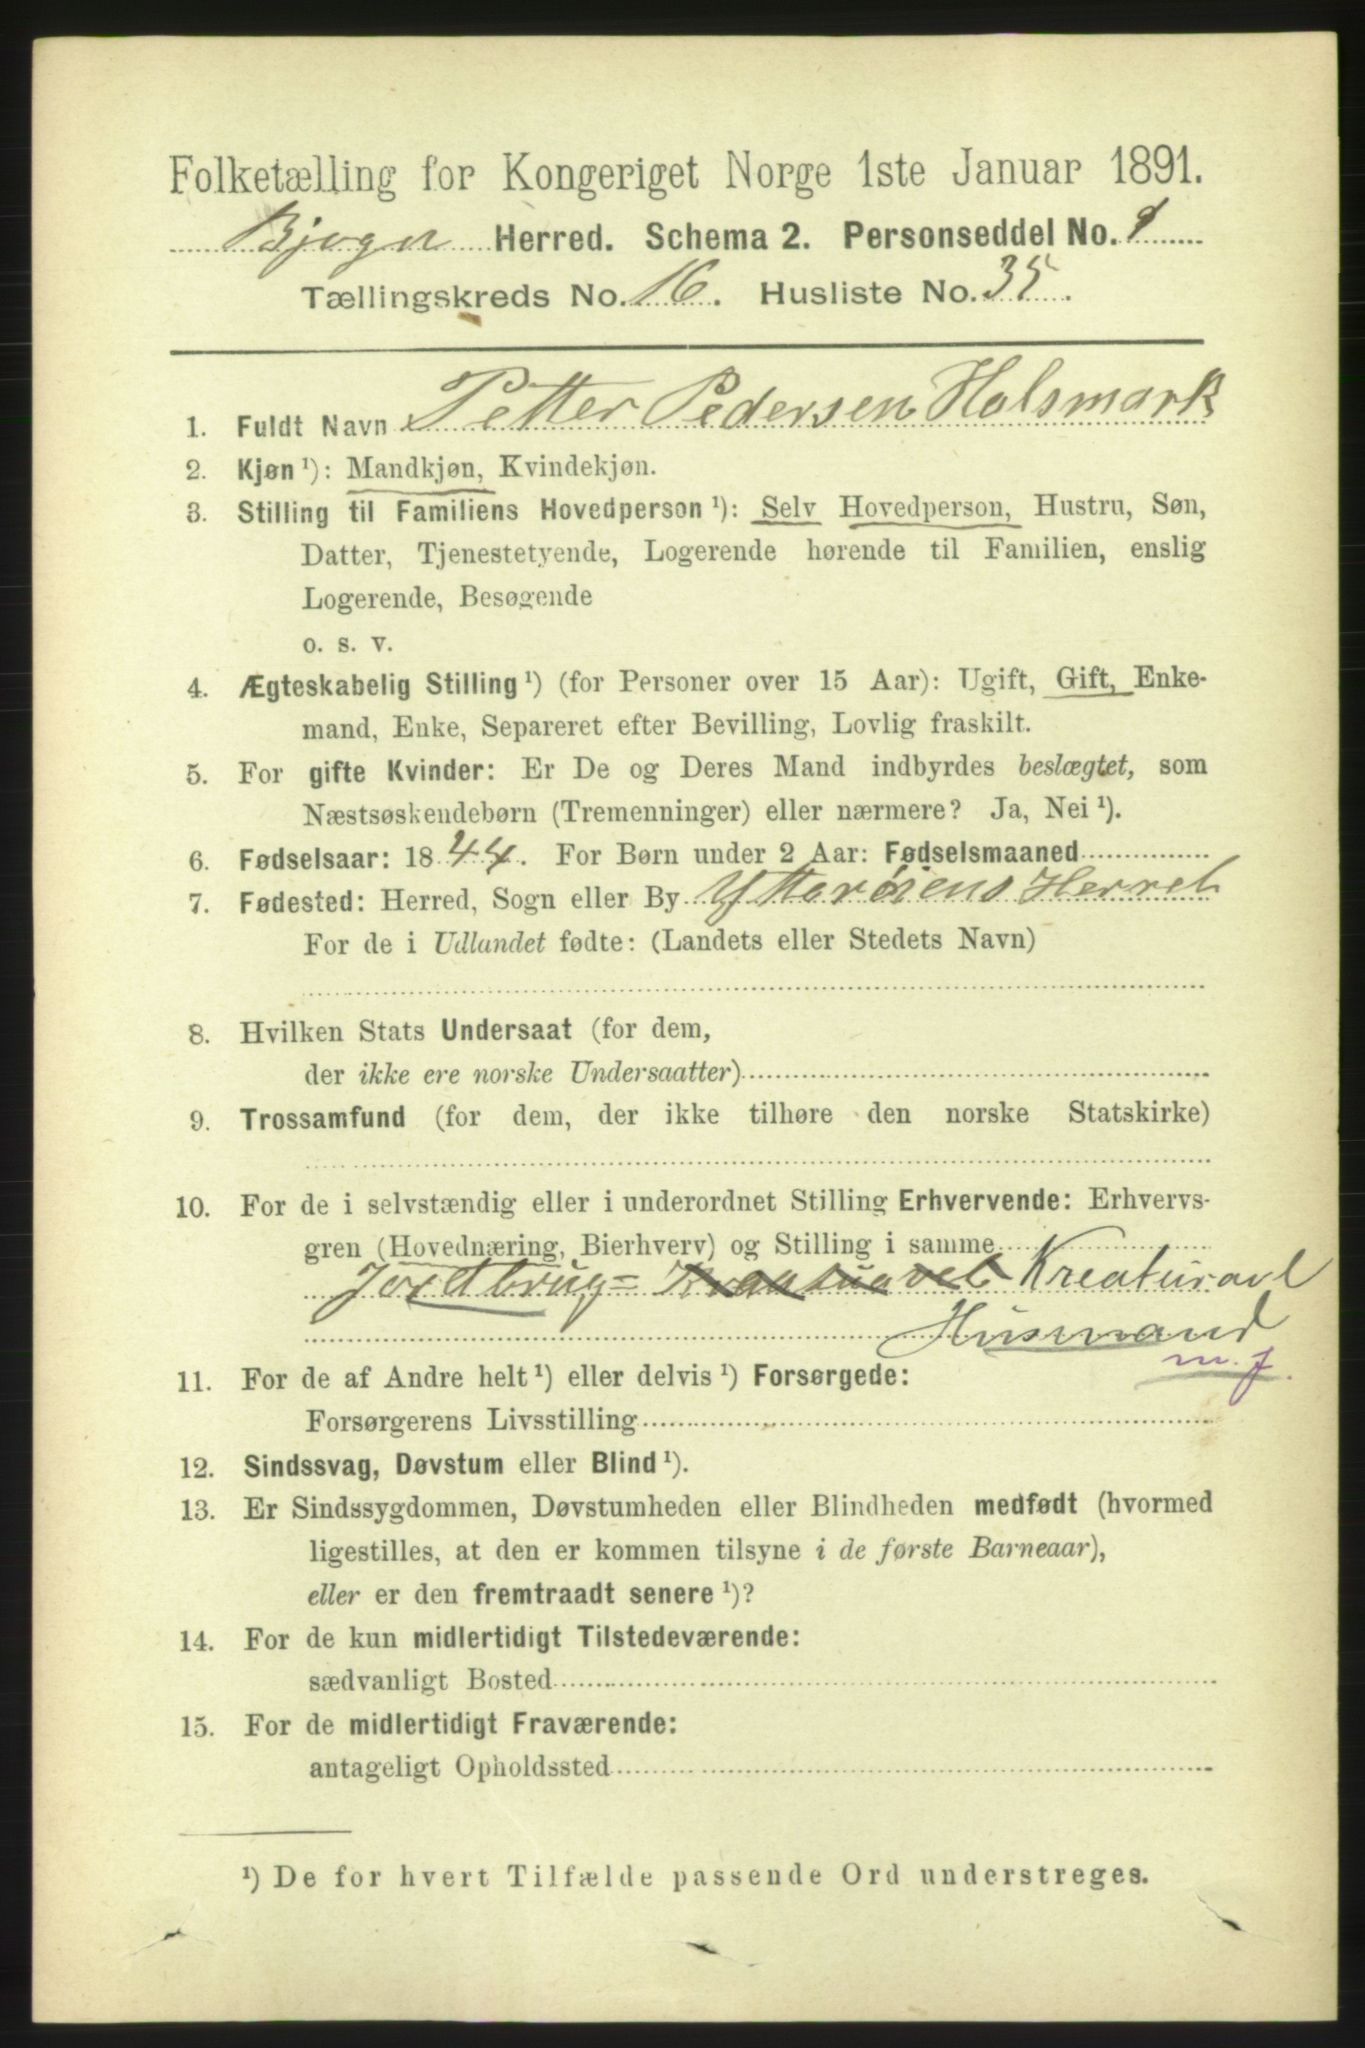 Folketælling for Kongeriget Norge 1ste Januar 1891.
Herred. Schema 2. Personseddel No. 1
Tællingskreds No. 16. Husliste No. 35.
1. Fuldt Navn Petter Pedersen Holsmark
2. Kjøn ¹): Mandkjøn, Kvindekjøn.
3. Stilling til Familiens Hovedperson ¹): Selv Hovedperson, Hustru, Søn,
Datter, Tjenestetyende, Logerende hørende til Familien, enslig
Logerende, Besøgende
o. s. v.
4. Ægteskabelig Stilling ¹) (for Personer over 15 Aar): Ugift, Gift, Enke-
mand, Enke, Separeret efter Bevilling, Lovlig fraskilt.
5. For gifte Kvinder: Er De og Deres Mand indbyrdes beslægtet, som
Næstsøskendebørn (Tremenninger) eller nærmere? Ja, Nei ¹).
6. Fødselsaar: 1844. For Børn under 2 Aar: Fødselsmaaned
7. Fødested: Herred, Sogn eller By Ytterøiens Herred
For de i Udlandet fødte: (Landets eller Stedets Navn)
8. Hvilken Stats Undersaat (for dem,
der ikke ere norske Undersaatter)
9. Trossamfund (for dem, der ikke tilhøre den norske Statskirke)
10. For de i selvstændig eller i underordnet Stilling Erhvervende: Erhvervs-
gren (Hovednæring, Bierhverv) og Stilling i samme
Jordbrug= Kreaturavl
Husmand
m. j.
11. For de af Andre helt ¹) eller delvis ¹) Forsørgede:
Forsørgerens Livsstilling
12. Sindssvag, Døvstum eller Blind ¹).
13. Er Sindssygdommen, Døvstumheden eller Blindheden medfødt (hvormed
ligestilles, at den er kommen tilsyne i de første Barneaar),
eller er den fremtraadt senere ¹)?
14. For de kun midlertidigt Tilstedeværende:
sædvanligt Bosted
15. For de midlertidigt Fraværende:
antageligt Opholdssted
¹) De for hvert Tilfælde passende Ord understreges.